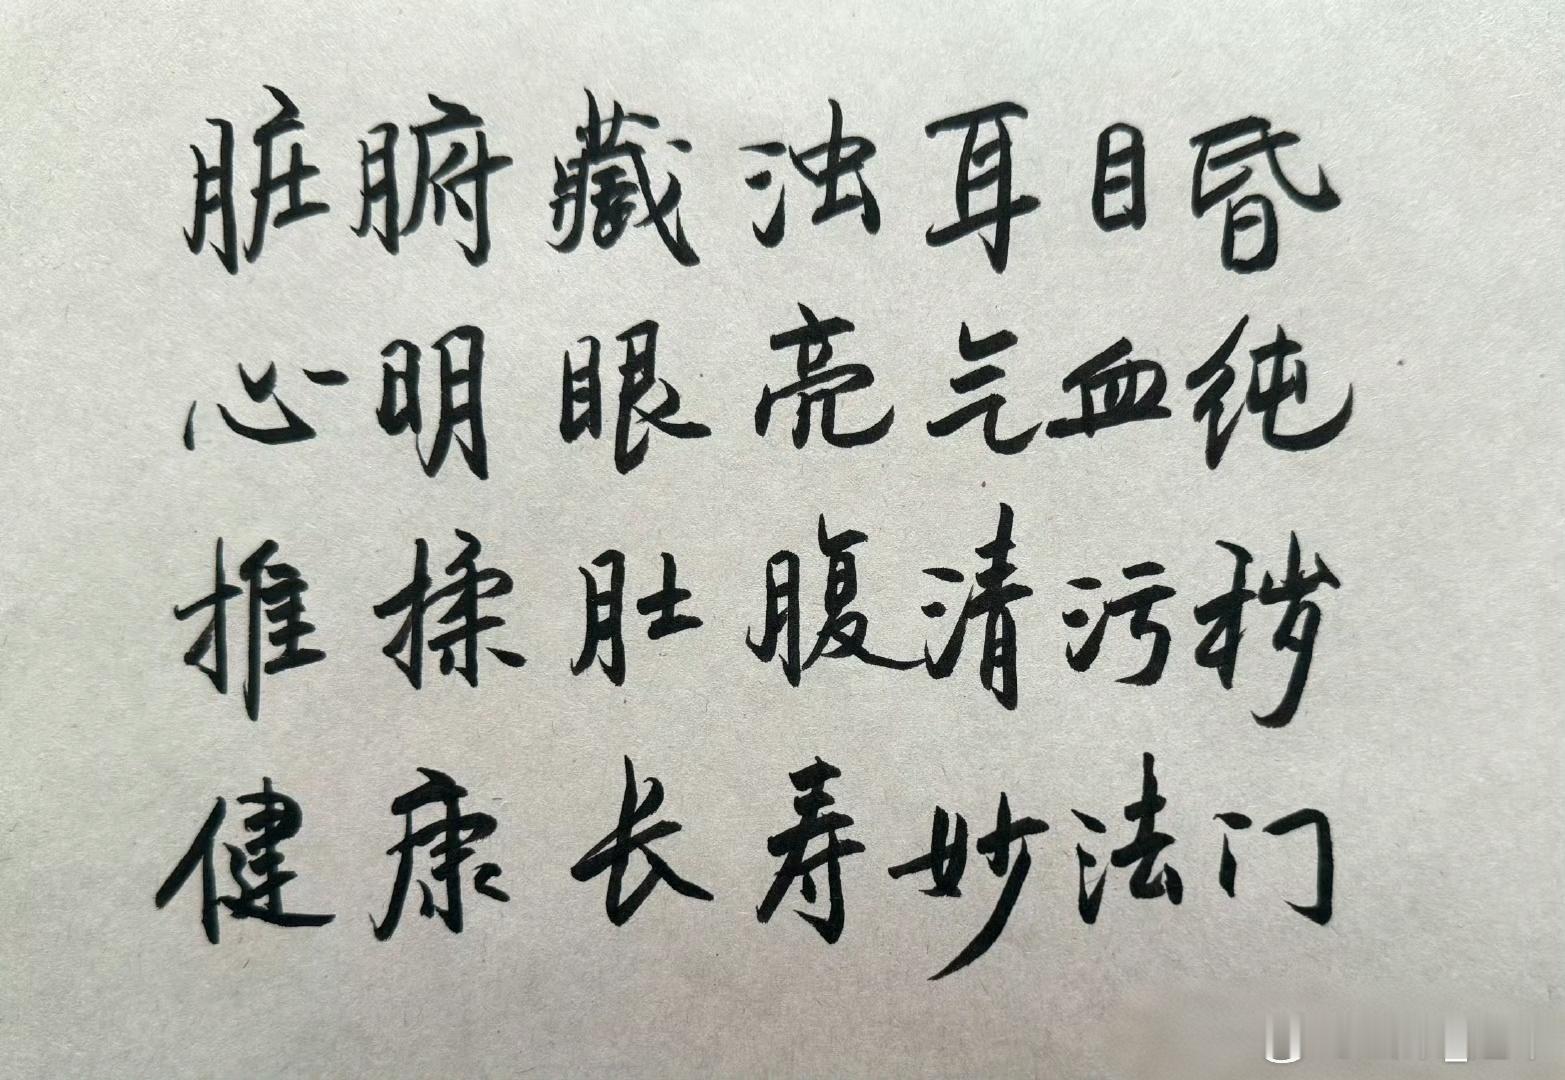 脏腑藏浊耳目昏
心明眼亮气血纯
推揉肚腹清污秽
健康长寿妙法门